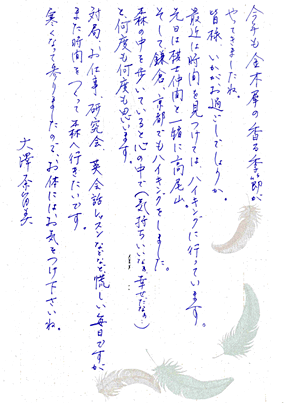 今年も金木犀の香る季節が
やってきましたね。
皆様、いかがお過ごしでしょうか。
最近は時間を見つけては、ハイキングに行っています。
先日は棋士仲間と一緒に高尾山。
そして鎌倉、京都でもハイキングをしました。
森の中を歩いていると心の中で(気持ちいいなぁ幸せだなぁ)
と何度も何度も思います。
対局、お仕事、研究会、英会話レッスンなどなど慌しい毎日ですが
また時間をつくって森へ行きたいです。
寒くなって参りましたので、お体にはお気をつけ下さいね。
大澤奈留美